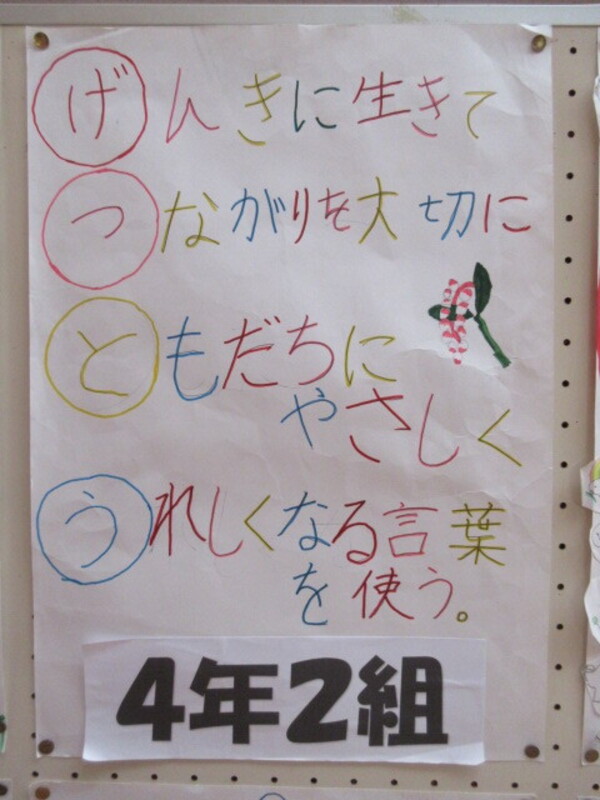 げんきに生きて
つながりを大切に
ともだちに
やさしく
うれしくなる言葉
を使う。
4年2組